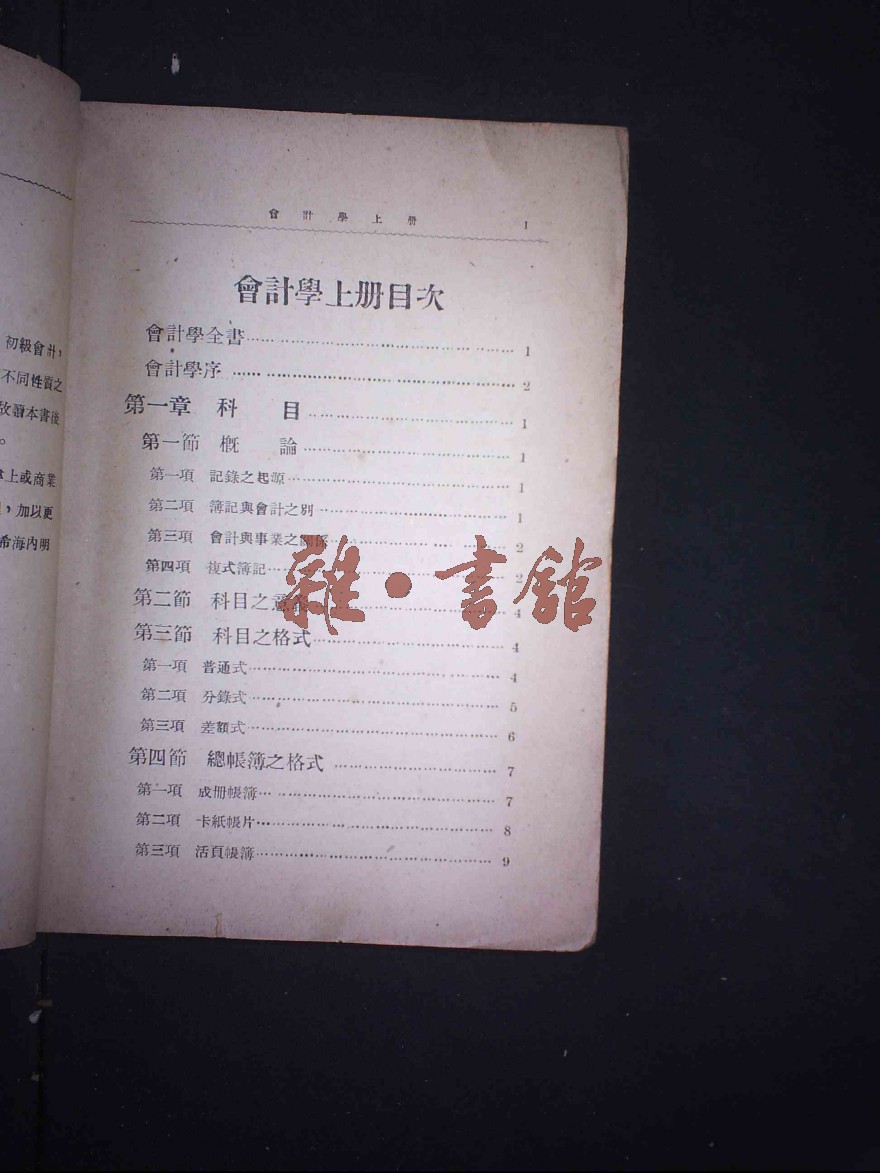 會計學上冊 1
會計學上册目次
會計學全書 1
會計學序 2
第一章 科目 1
第一節 概論 1
第一項 記錄之起源 1
第二項 簿記與會計之別 1
第三項 會計與事業之關係 2
第四項 複式簿記 2
第二節 科目之意義 4
第三節 科目之格式 4
第一項 普通式 4
第二項 分錄式 5
第三項 差額式 6
第四節 總帳簿之格式 7
第一項 成冊帳簿 7
第二項 卡紙帳片 8
第三項 活頁帳簿 9
初級會計,
不同性質之
故讀本書後
。
上或商業
,加以更
希海內朋
雜·書館